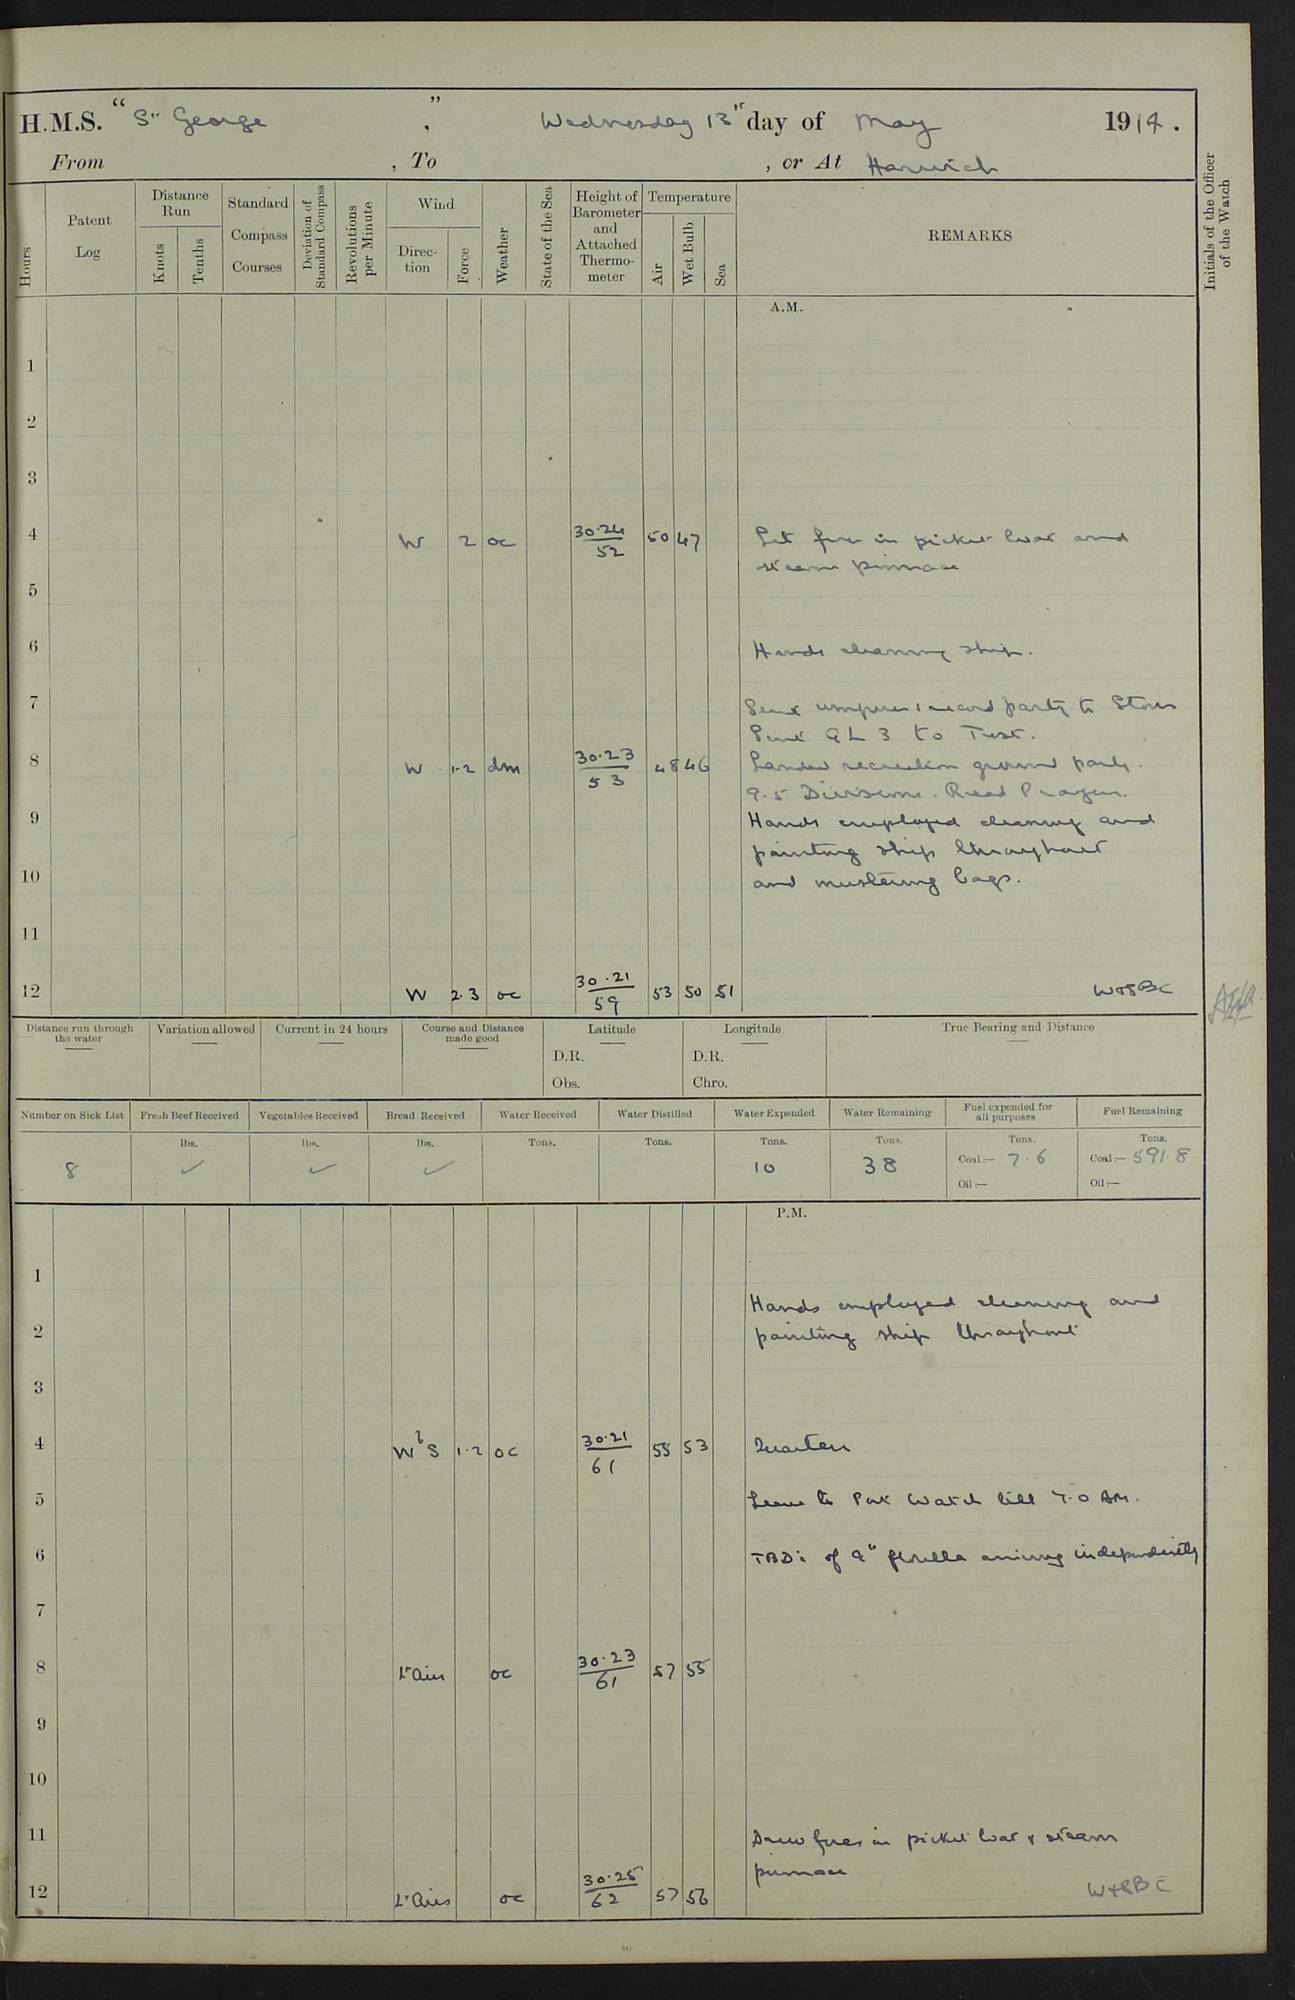 H.M.S. " St George " , Wednesday 13th day of May 1914.
From , To , or At Harwich
Hours
Patent Log
Distance Run
Knots
Tenths
Standard Compass Courses
Deviation of Standard Compass
Revolutions per Minute
Wind
Direction
Force
Weather
State of the Sea
Height of Barometer and Attached Thermometer
Temperature
Air
Wet Bulb
Sea
REMARKS
Initials of the Officer of the Watch
A.M.
1
2
3
4 W 2 oc 30.24 / 52 50 47 Lit fires in picket boat and
steam pinnace
5
6 Hands cleaning ship.
7 Sent party to
Sent to
8 W 1.2 dm 30.23 / 53 48 46 Landed recreation ground party.
9.5 Divisions. Read Prayers.
9 Hands employed cleaning and
painting ship throughout
10 and mustering bags.
11
12 W 2.3 oc 30.21 / 59 53 50 51 W&SBC
Distance run through the water
Variation allowed
Current in 24 hours
Course and Distance made good
Latitude
D.R.
Obs.
Longitude
D.R.
Chro.
True Bearing and Distance
Number on Sick List
Fresh Beef Received
Vegetables Received
Bread Received
Water Received
Water Distilled
Water Expended
Water Remaining
Fuel expended for all purposes
Fuel Remaining
lbs. lbs. lbs. Tons. Tons. Tons. Tons. Tons. Tons.
8 ✓ ✓ ✓ 10 38 Coal:— 7.6 Coal:— 591.8
Oil:— Oil:—
P.M.
1
Hands employed cleaning and
2 painting ship throughout
3
4 WbS 1.2 oc 30.21 / 61 55 53 Quarters
5 Leave to Port Watch till 7.0 AM.
6 TBDs of 9th flotilla arriving independently
7
8 Lt airs oc 30.23 / 61 57 55
9
10
11 Drew fires in picket boat & steam
pinnace
12 Lt airs oc 30.25 / 62 57 56 W&SBC